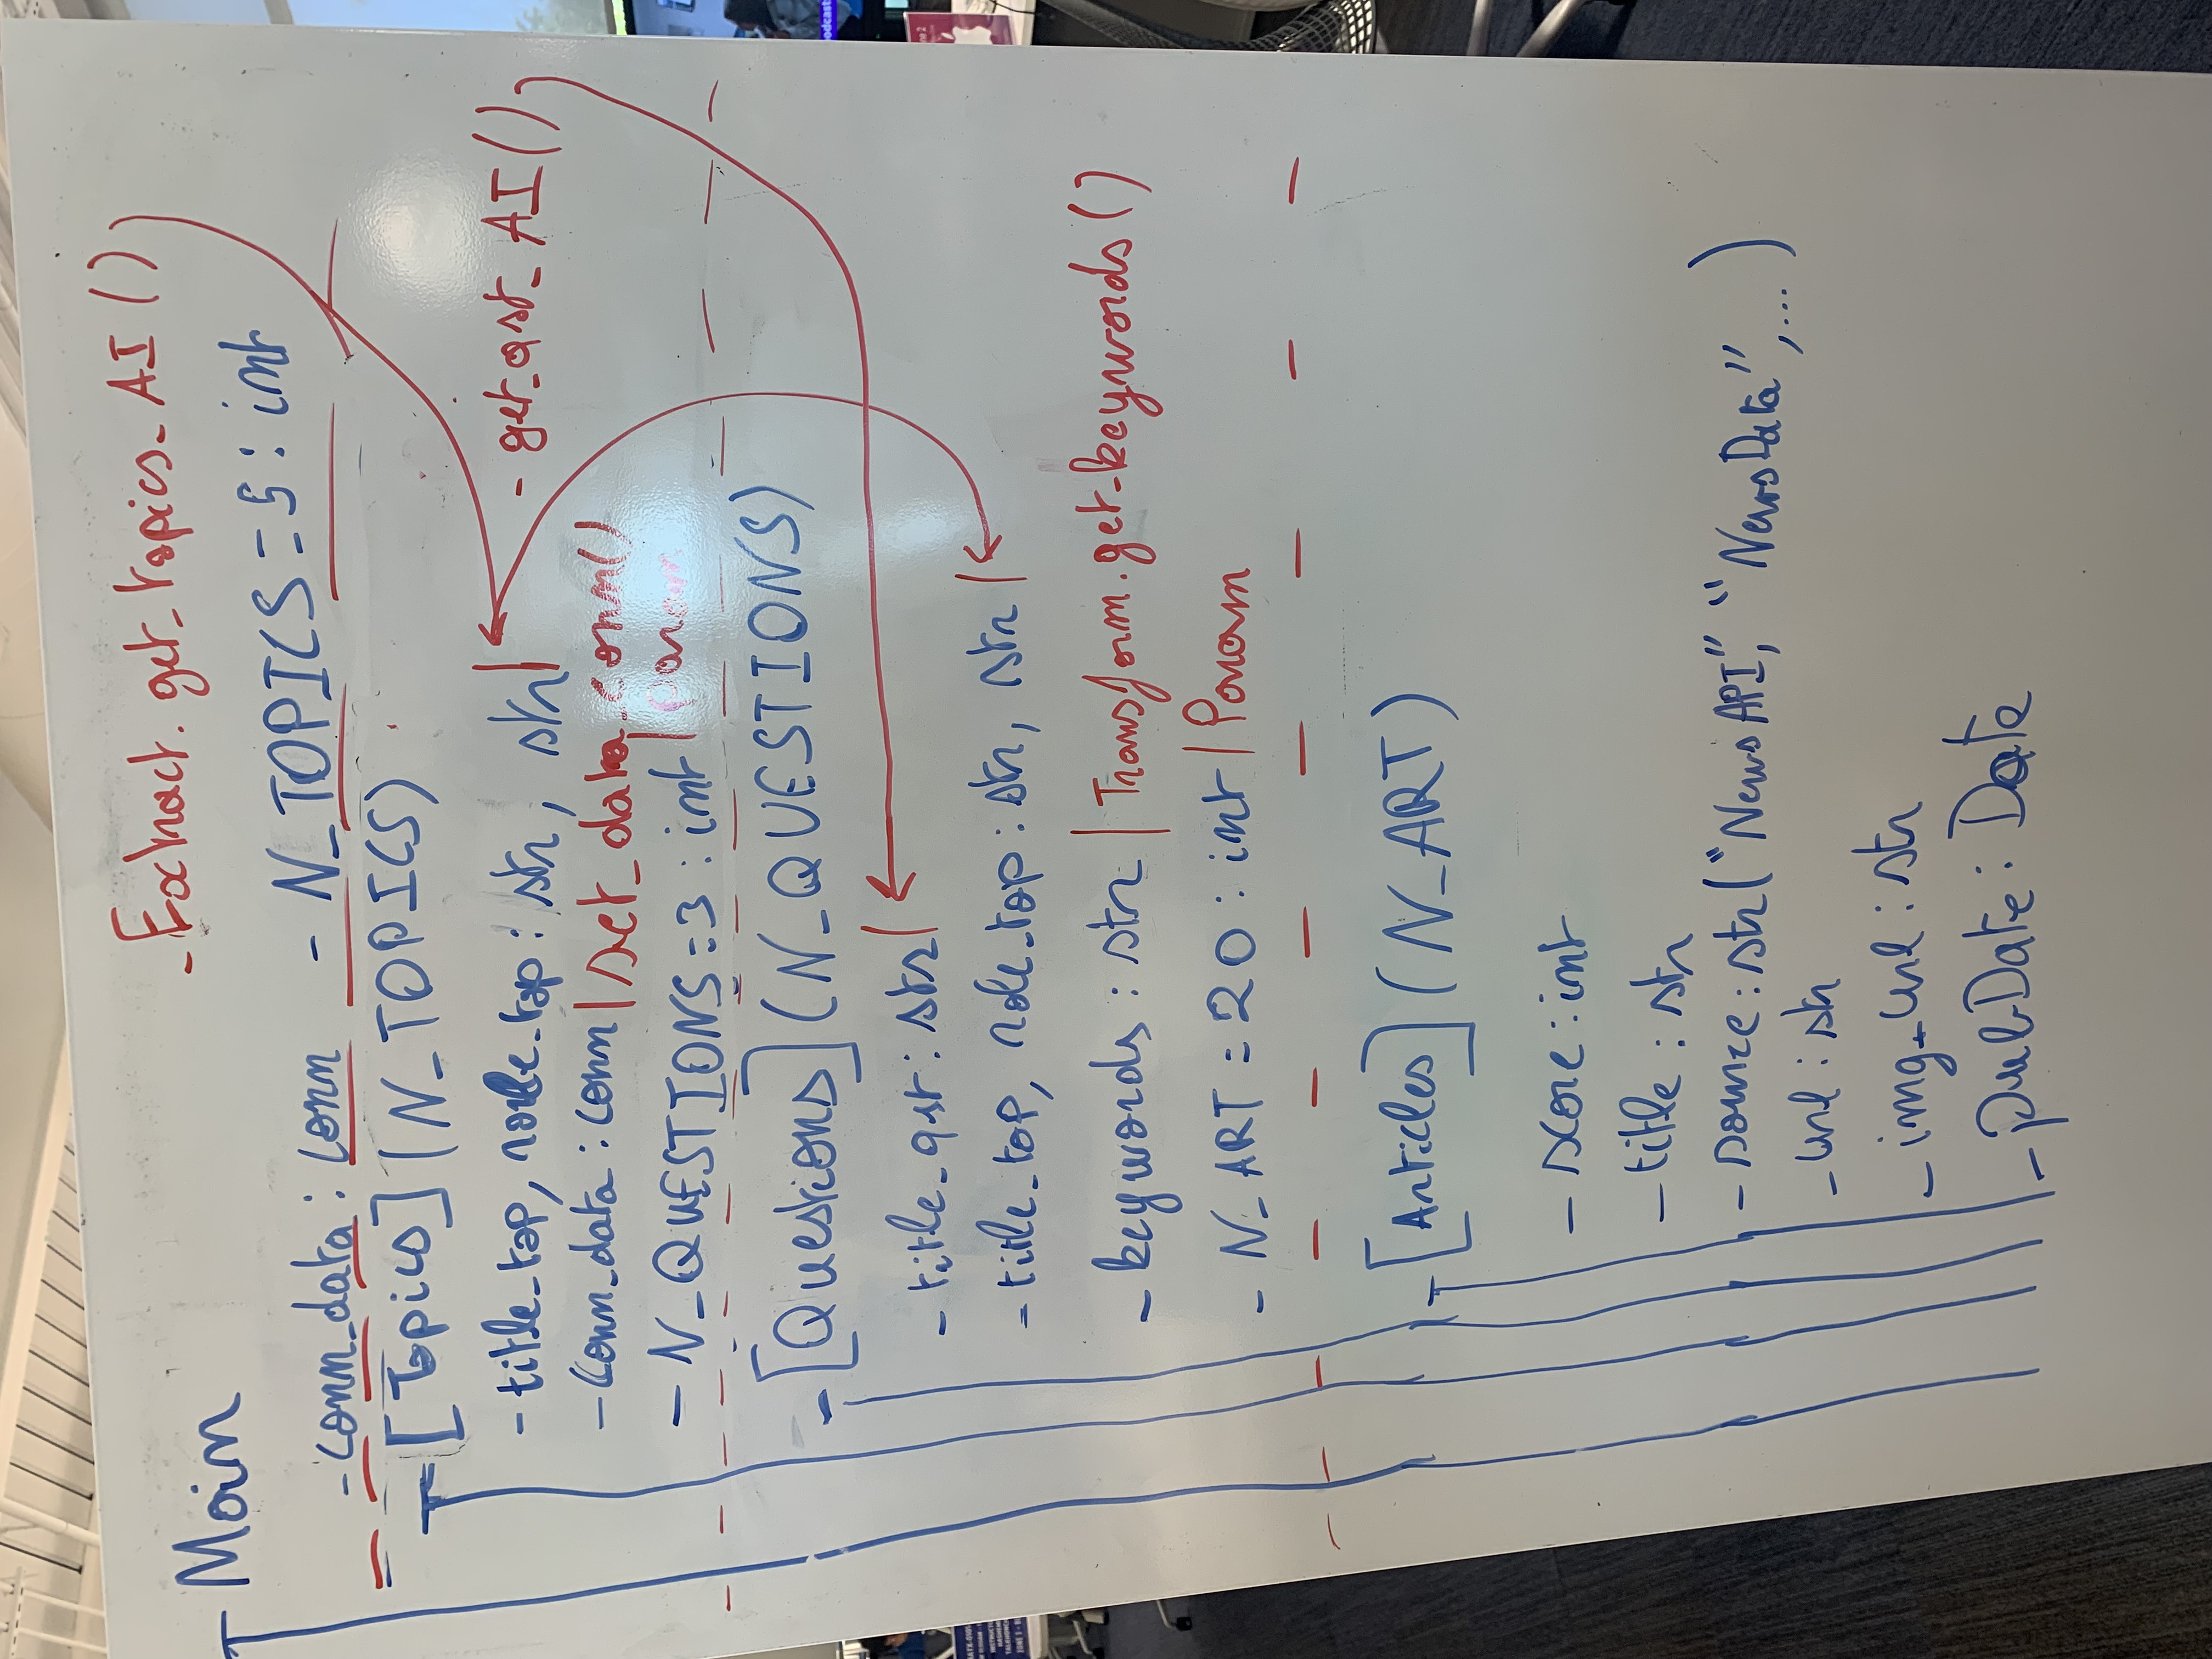 - Extract. get_topics_AI ()
Main
- conn_data : conn - N_TOPICS = 5 : int
[Topics] (N_TOPICS)
- title_top, role_top : str, str |
- get_qst_AI ()
- conn_data : conn | set_data_conn()
- N_QUESTIONS = 3 : int | Param
- [Questions] (N_QUESTIONS)
- title_qst : str |
- title_top, role_top : str, str |
- keywords : str | Transform.get_keywords ()
- N_ART = 20 : int | Param
- [Articles] (N_ART)
- score : int
- title : str
- source : str ("NewsAPI", "NewsData", ... )
- url : str
- img_url : str
- pubDate : Date
odcast
INSTRUCT
ZONE 3
ne 2